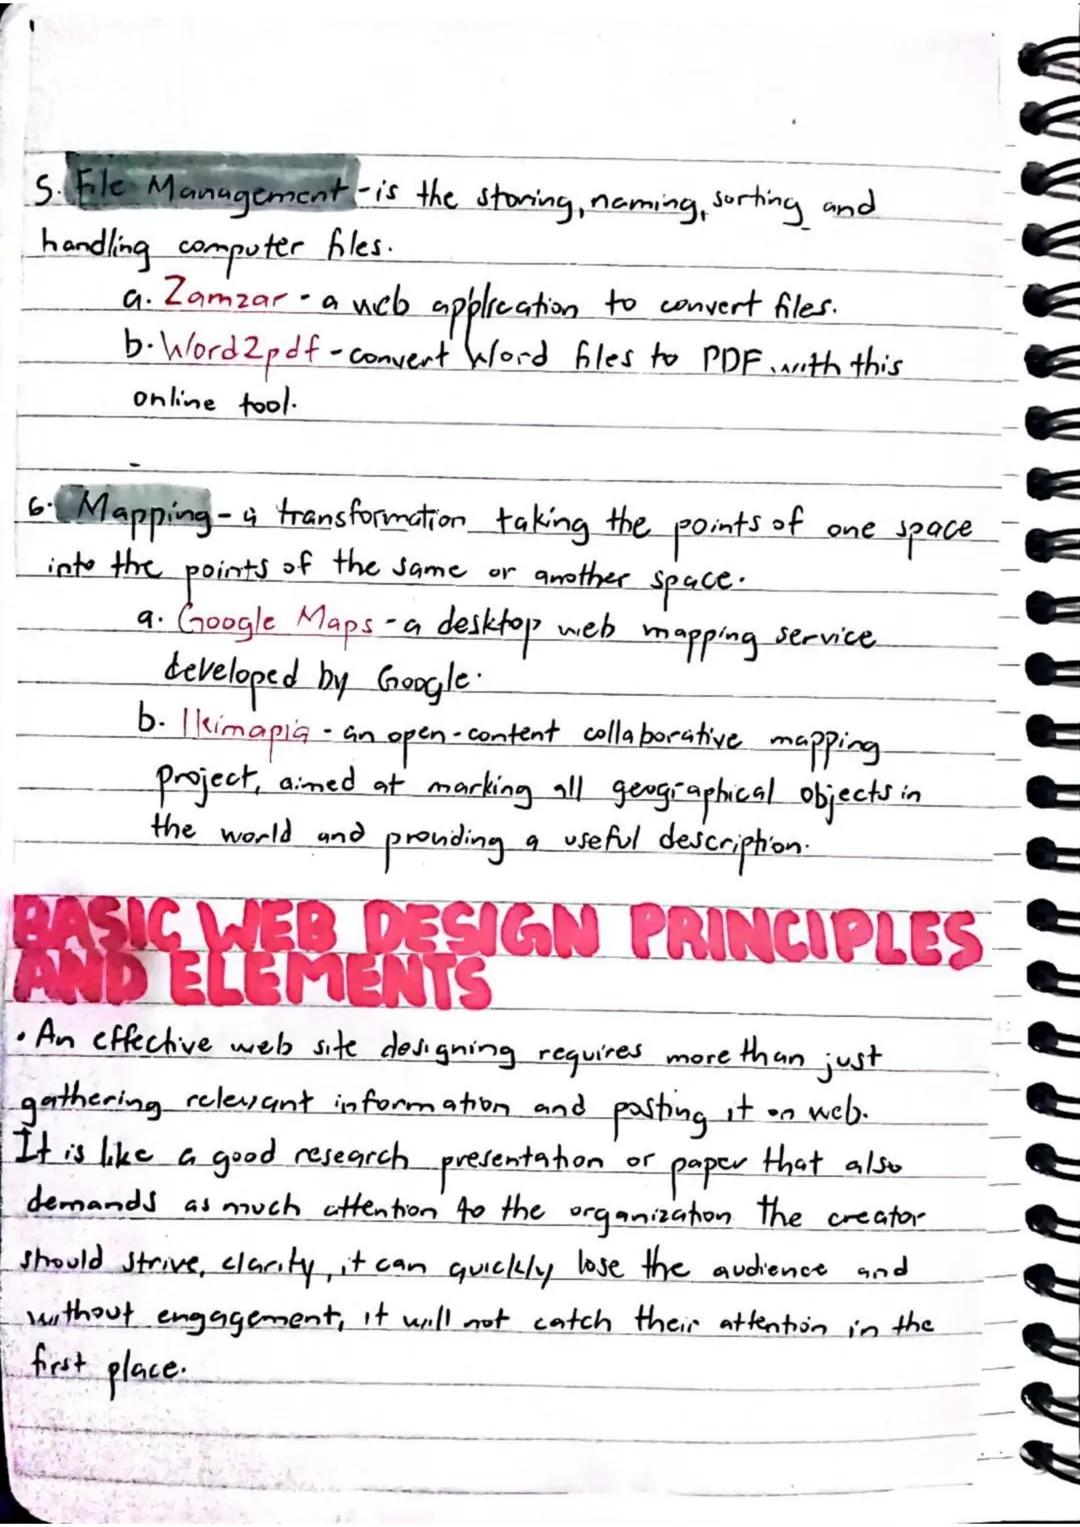 5. File Management - is the storing, naming, sorting and
handling computer files.
a. Zamzar - a web application to convert files.
b. Word2pdf - convert Word files to PDF with this
online tool.
6. Mapping - a transformation taking the points of one space
into the points of the same or another space.
a. Google Maps - a desktop web mapping service
developed by Google.
b. Ikimapia - an open-content collaborative mapping
project, aimed at marking all geographical objects in
the world and providing a useful description.
BASIC WEB DESIGN PRINCIPLES
AND ELEMENTS
• An effective web site designing requires more than just
gathering relevant information and posting it on web.
It is like a good research presentation or paper that also
demands as much attention to the organization the creator
should strive, clarity, it can quickly lose the audience and
without engagement, it will not catch their attention in the
first place.